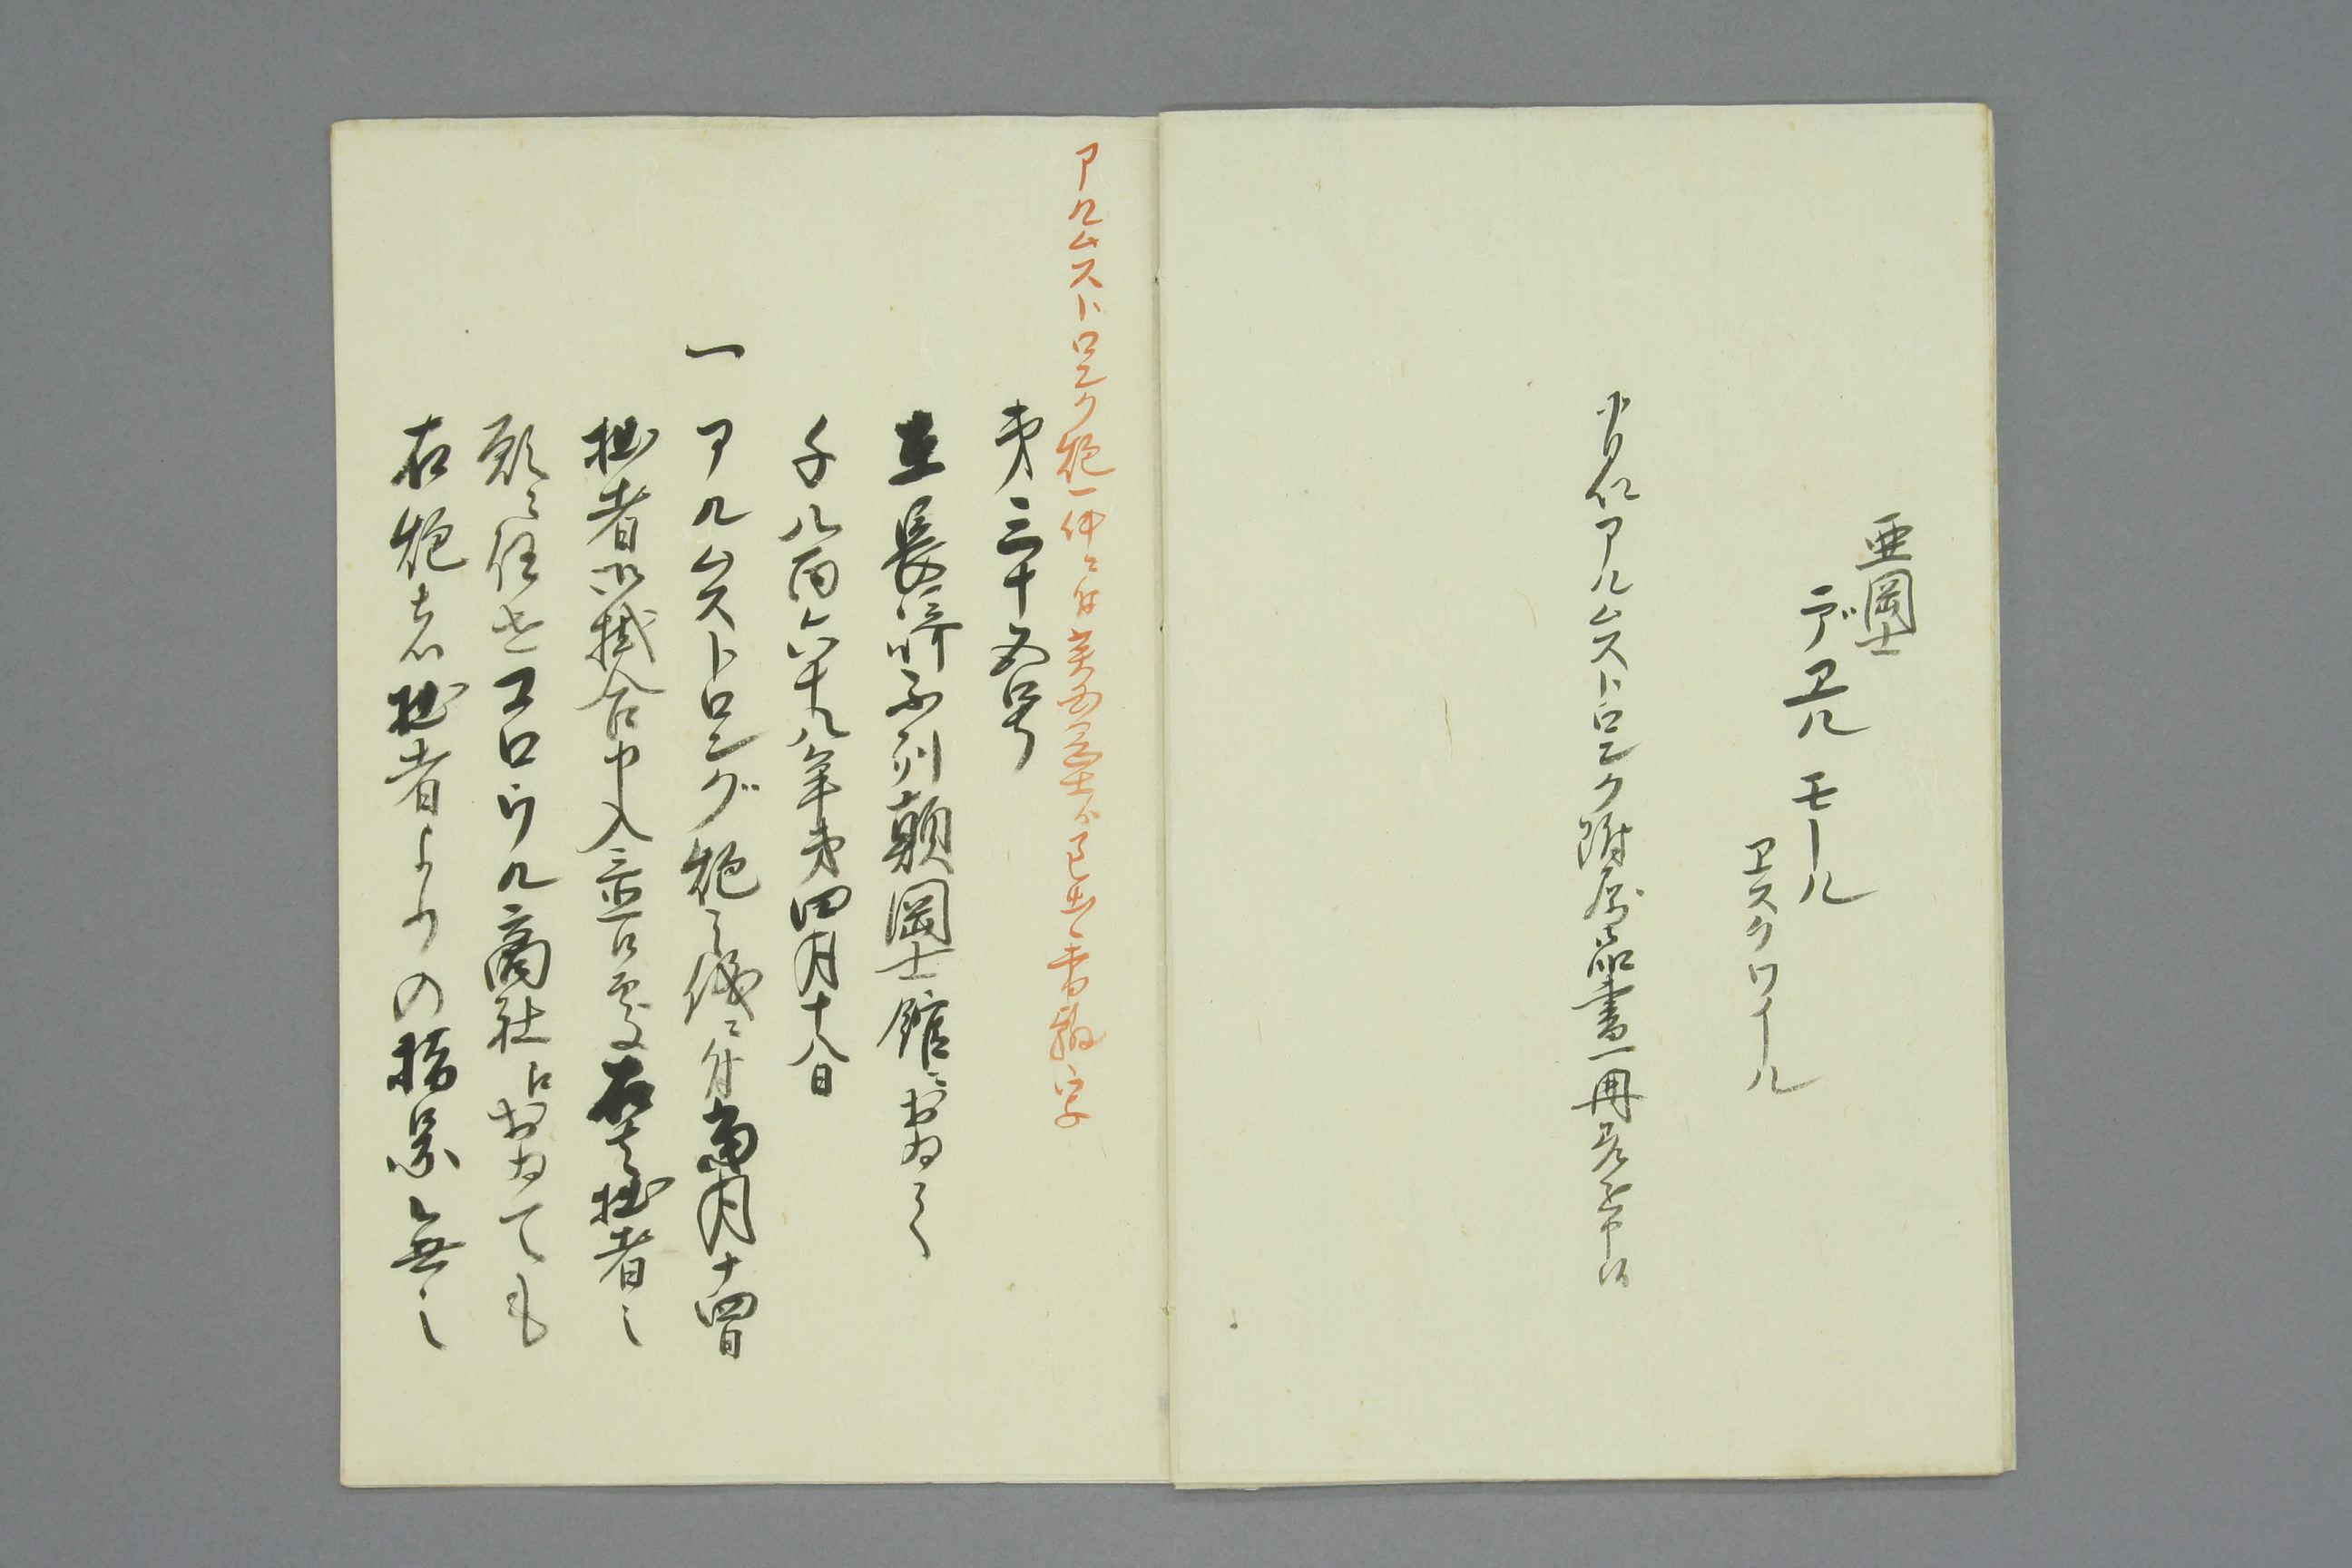 亜岡士
デヱル モール
ヱスクワイール
アルムストロンク附属品書一冊差出申候
アルムストロンク砲一件ニ付英岡士より差出書翰写
第三十五号
在長崎不列顛岡士館ニおゐて
千八百六十八年第四月十八日
一 アルムストロング砲之儀ニ付当月十四日
拙者御掛合申入置候処右者拙者之
願ニ任せコロウル商社ニおゐても
右砲者拙者よりの指図無之